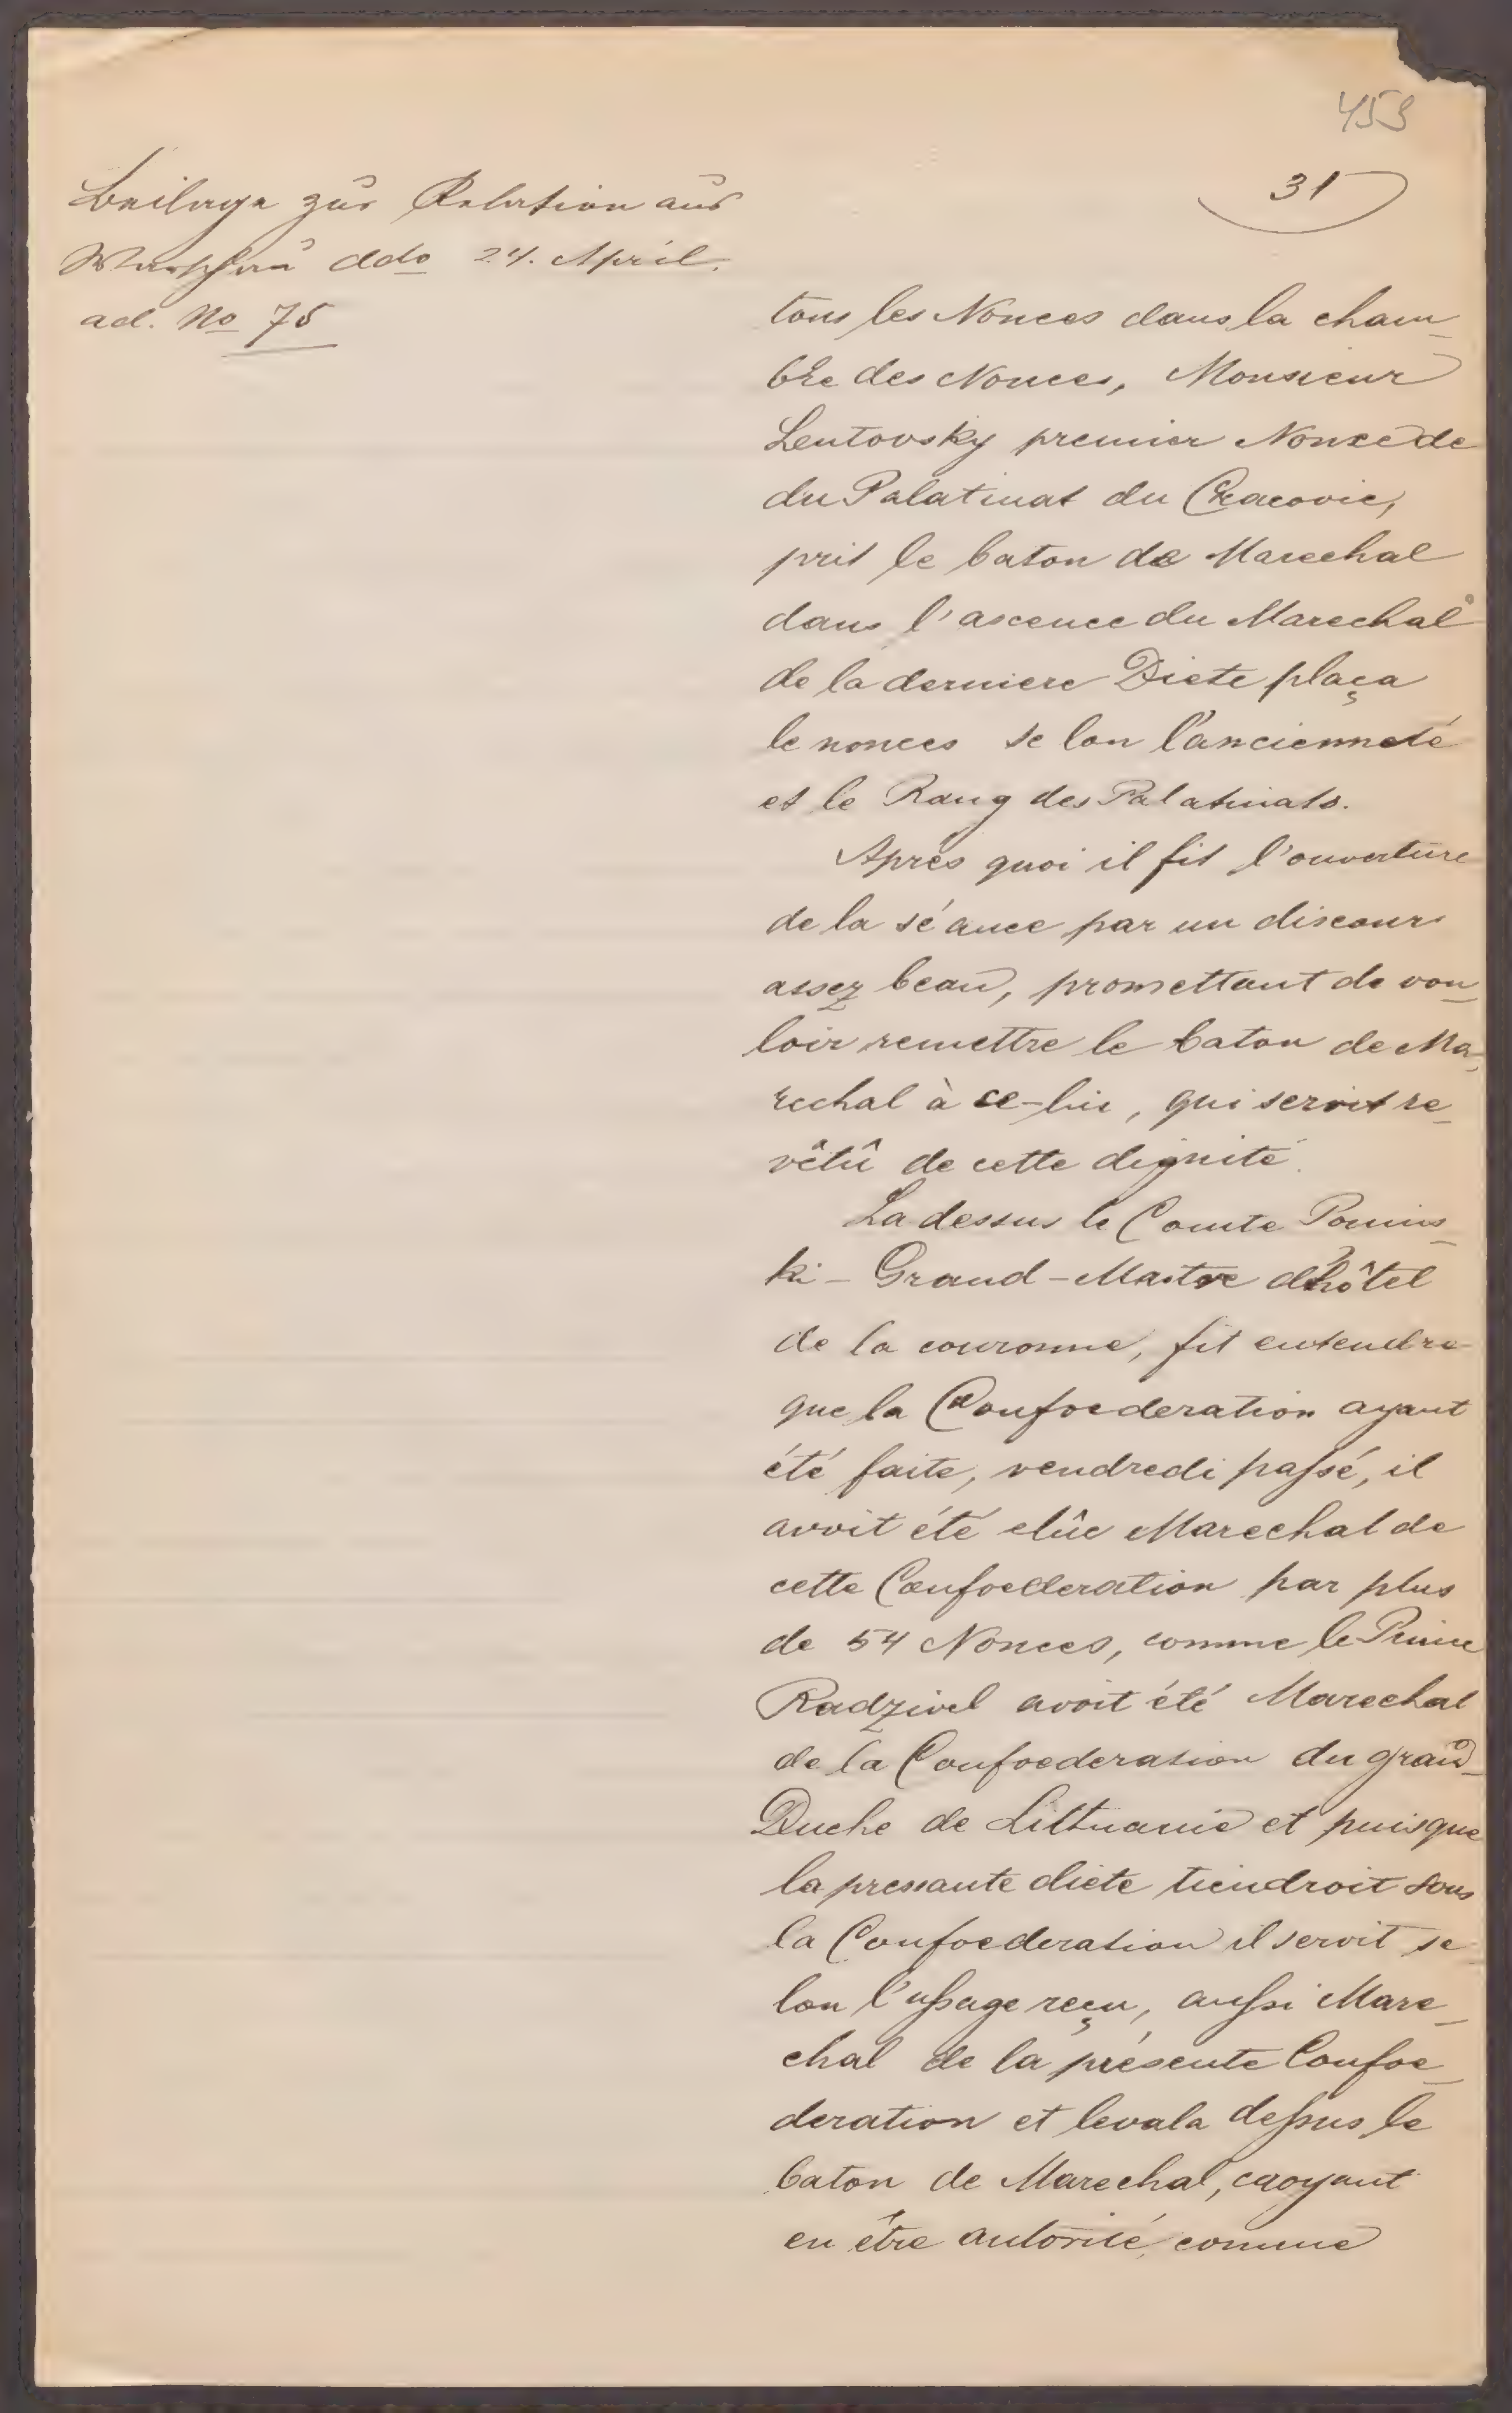 453
31
Beilage zur Relation aus
Warschau ddo 24. April.
ad. No 75
tous les Nonces dans la cham_
bre des Nonces, Monsieur
Lentovsky premier Nonce de
du Palatinat du Cracovie,
prit le baton de Marechal
dans l'ascence du Marechal
de la derniere Diete plaça
le nonces se lon l'ancienneté
et le Rang des Palatinats.
Après quoi il fit l'ouverture
de la séance par un discours
assez beau, promettant de vou_
loir remettre le baton de Ma_
rechal à ce-lui, qui seroit re_
vêtû de cette dignité.
La dessus le Comte Ponins_
ki - Grand-Maitre d'hôtel
de la couronne, fit entendre
que la Confoederation ayant
été faite, vendredi passé, il
avoit été elûe Marechal de
cette Confoederation par plus
de 54 Nonces, comme le Prince
Radzivel avoit été Marechal
de la Confoederation du grand_
Duche de Littuanie et puisque
la pressante diete tiendroit sous
la Confoederation il seroit se
lon l'ussage reçu, aussi Mare_
chal de la présente Confoe_
deration et levala dessus le
baton de Marechal, croyant
en être autorisé, comme